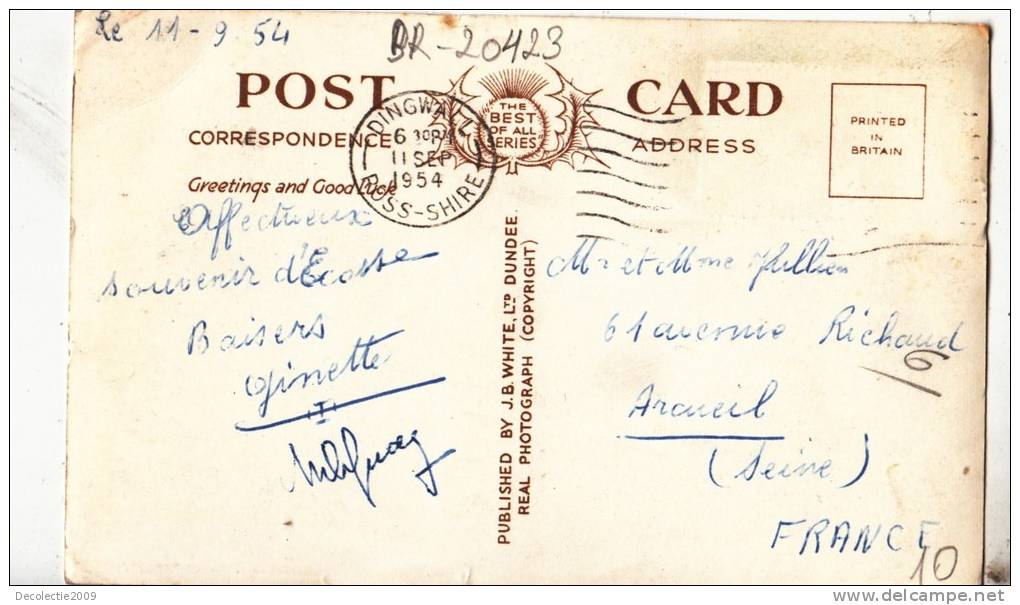 Le 11-9.54
BR-20423
POST CARD
THE
BEST
OF ALL
SERIES
CORRESPONDENCE
ADDRESS
PRINTED
IN
BRITAIN
DINGWALL
6 30PM
11 SEP
1954
ROSS-SHIRE
Greetings and Good Luck
Affectueux
souvenir d'Ecosse
Baisers
Ginette
PUBLISHED BY J.B. WHITE, LTD DUNDEE.
REAL PHOTOGRAPH (COPYRIGHT)
Mr et Mme Jullien
61 avenue Richaud
Arcueil
(Seine)
FRANCE
10
Decolectie2009
www.delcampe.net